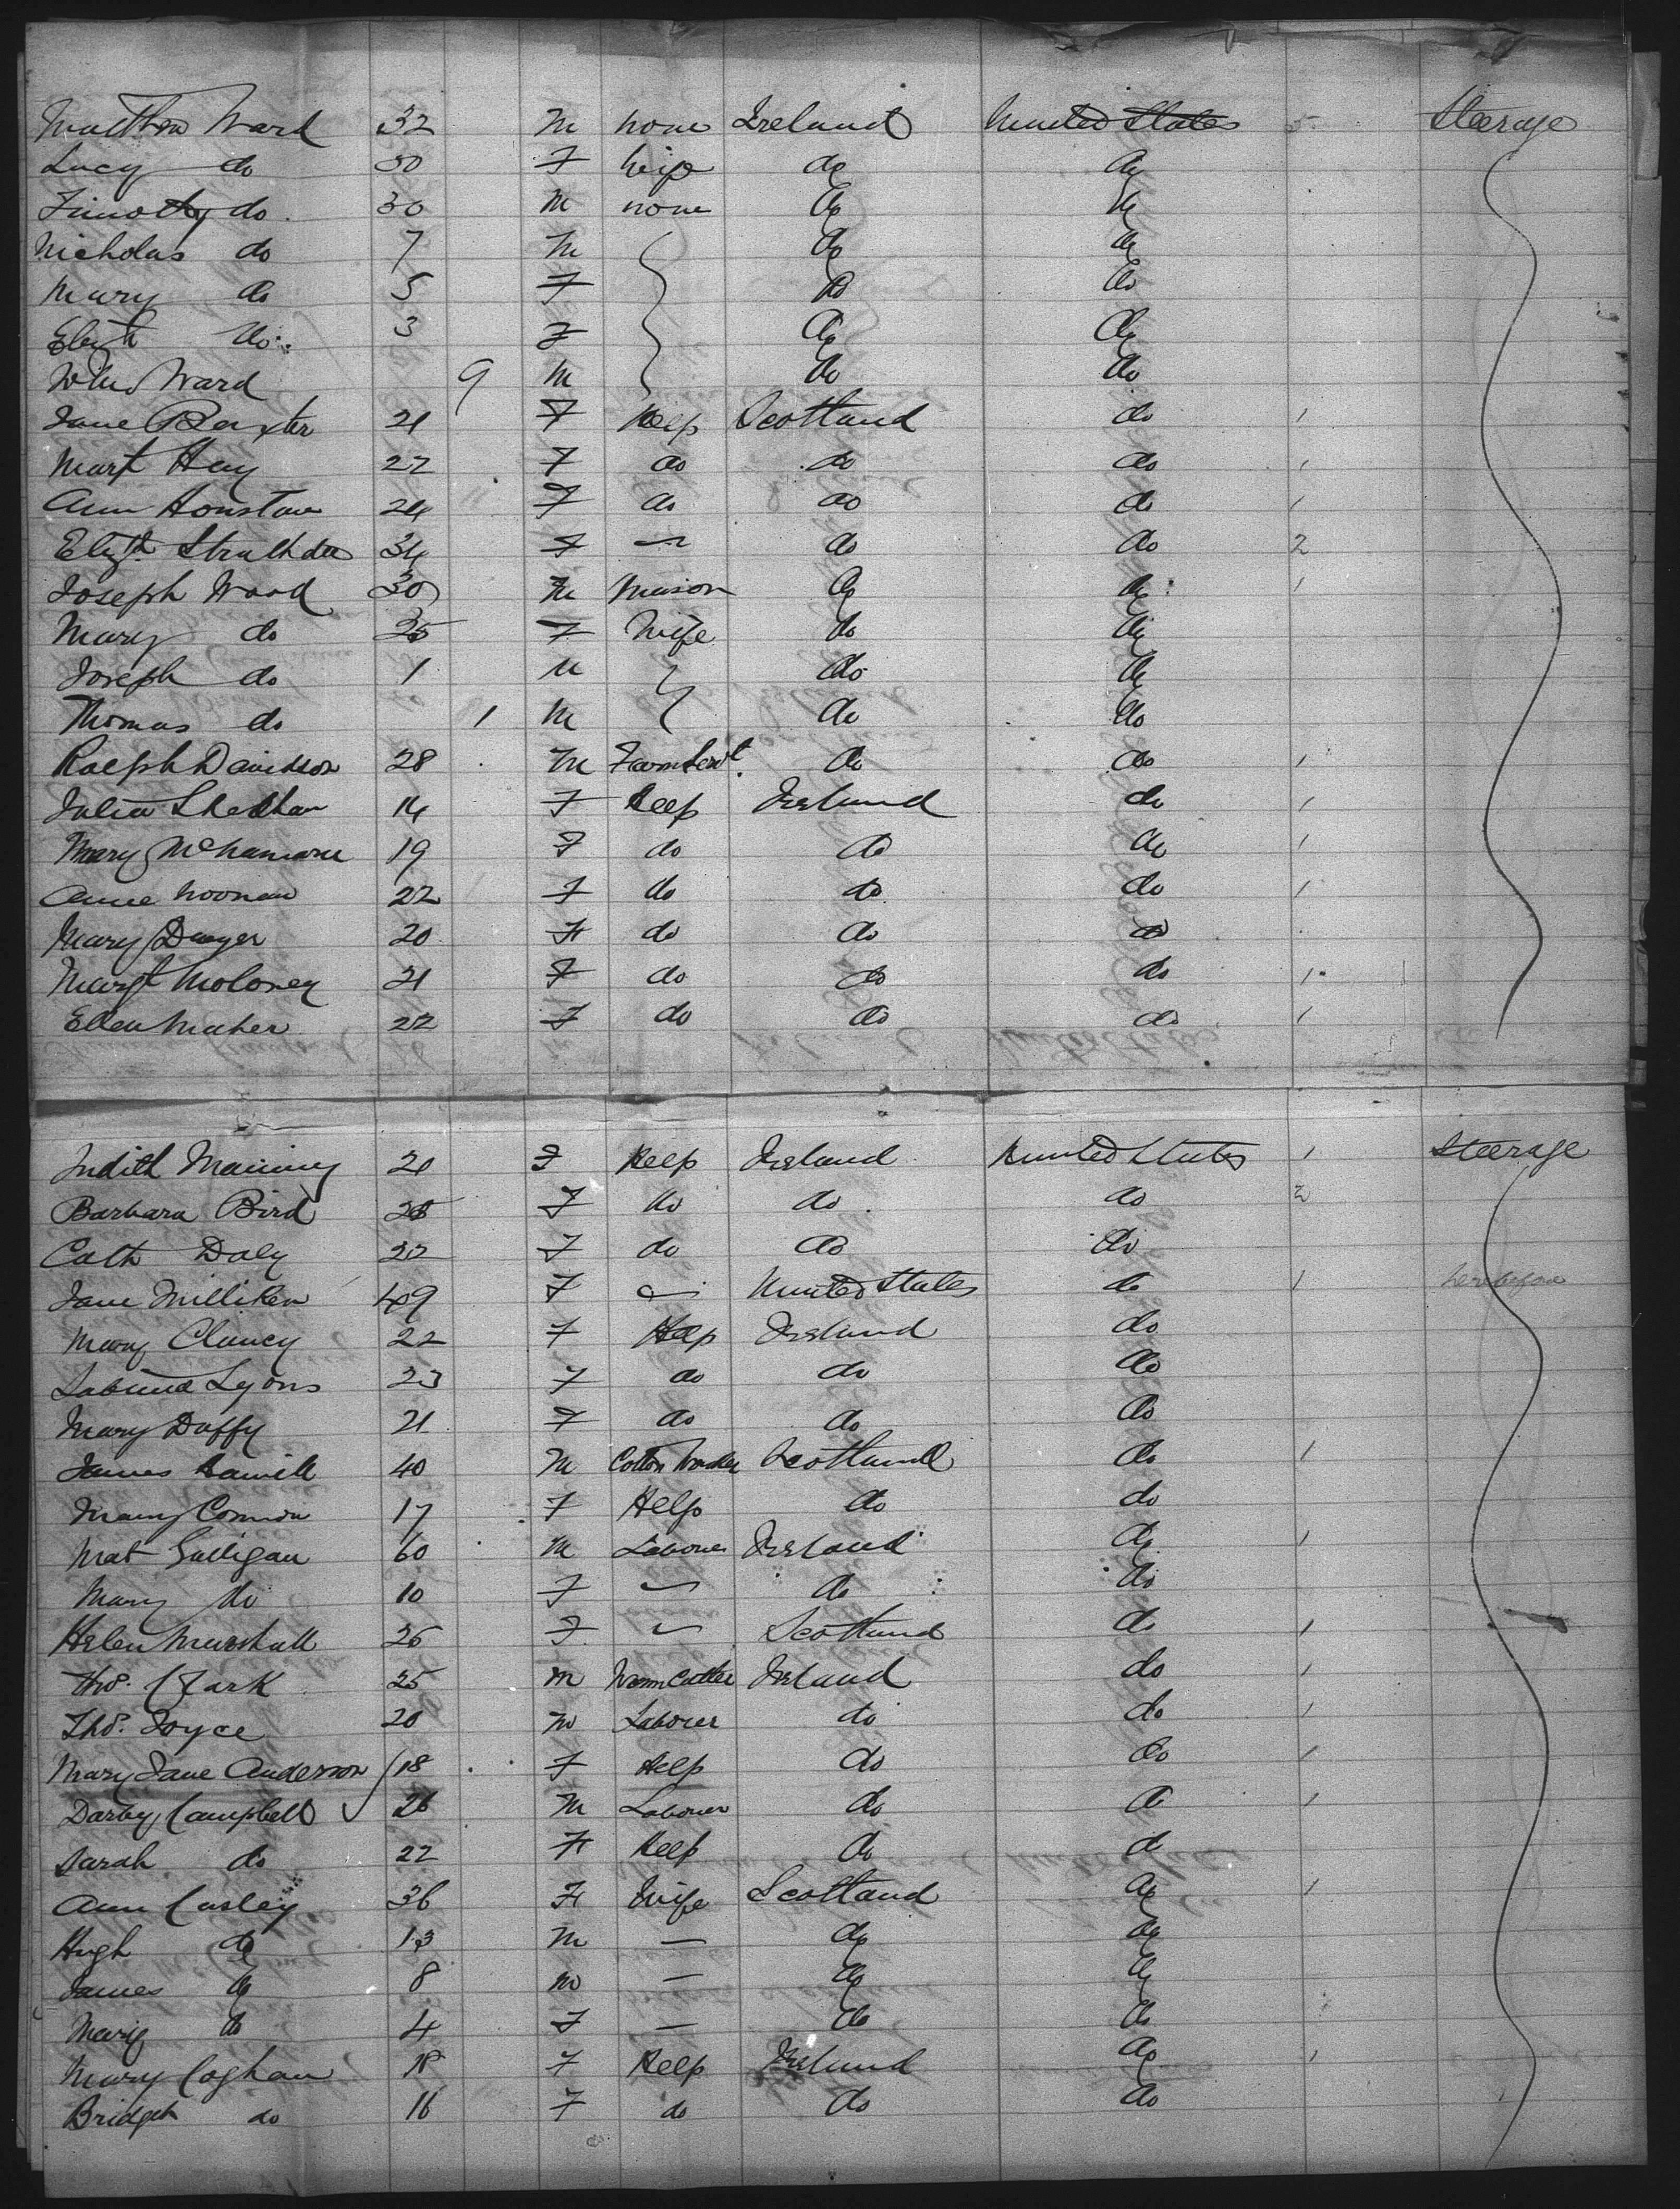 Matthew Ward 32 M none Ireland United States 5 Steerage
Lucy do 30 F wife do do
Timothy do 30 M none do do
Nicholas do 7 M do do
Mary do 5 F do do
Elizth do 3 F do do
John Ward 9 M do do
Jane Baxter 21 F Help Scotland do 1
Margt Hay 22 F do do do 1
Ann Houston 24 F do do do 1
Elizth Strathdee 34 F — do do 2
Joseph Wood 30 M Mason do do 1
Mary do 25 F Wife do do
Joseph do 1 M do do
Thomas do 1 M do do
Ralph Davidson 28 M Farm Servt do do 1
Julia Sheehan 14 F Help Ireland do 1
Mary McNamara 19 F do do do 1
Anne Noonan 22 F do do do 1
Mary Dwyer 20 F do do do
Margt Moloney 21 F do do do 1
Ellen Maher 22 F do do do 1
Judith Manning 20 F Help Ireland United States 1 Steerage
Barbara Bird 25 F do do do 2
Cath Daly 22 F do do do
Jane Milliken 49 F — United States do 1 here before
Mary Clancy 22 F Help Ireland do
Sabina Lyons 23 F do do do
Mary Duffy 21 F do do do
James 40 M Cotton Worker Scotland do 1
Mary Connon 17 F Help do do
Mat Gilligan 60 M Laborer Ireland do 1
Mary do 10 F — do do
Helen Marshall 26 F — Scotland do 1
Thos. Clark 25 M Ireland do 1
Thos. Joyce 20 M Laborer do do 1
Mary Jane Anderson 18 F Help do do 1
Darby Campbell 26 M Laborer do do 1
Sarah do 22 F Help do do
Ann Casley 36 F Wife Scotland do 1
Hugh do 13 M — do do
James do 8 M — do do
Mary do 4 F — do do
Mary Coghan 18 F Help Ireland do 1
Bridget do 16 F do do do